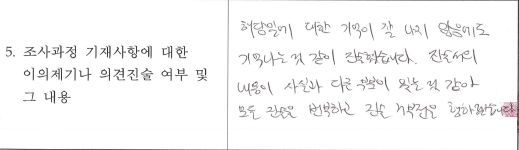 5. 조사과정 기재사항에 대한
이의제기나 의견진술 여부 및
그 내용
해당일에 대한 기억이 잘 나지 않음에도
기억나는 것 같이 진술했습니다. 진술서의
내용이 사실과 다른 부분이 있는 것 같아
모든 진술을 번복하고 진술 거부권을 행사하겠습니다